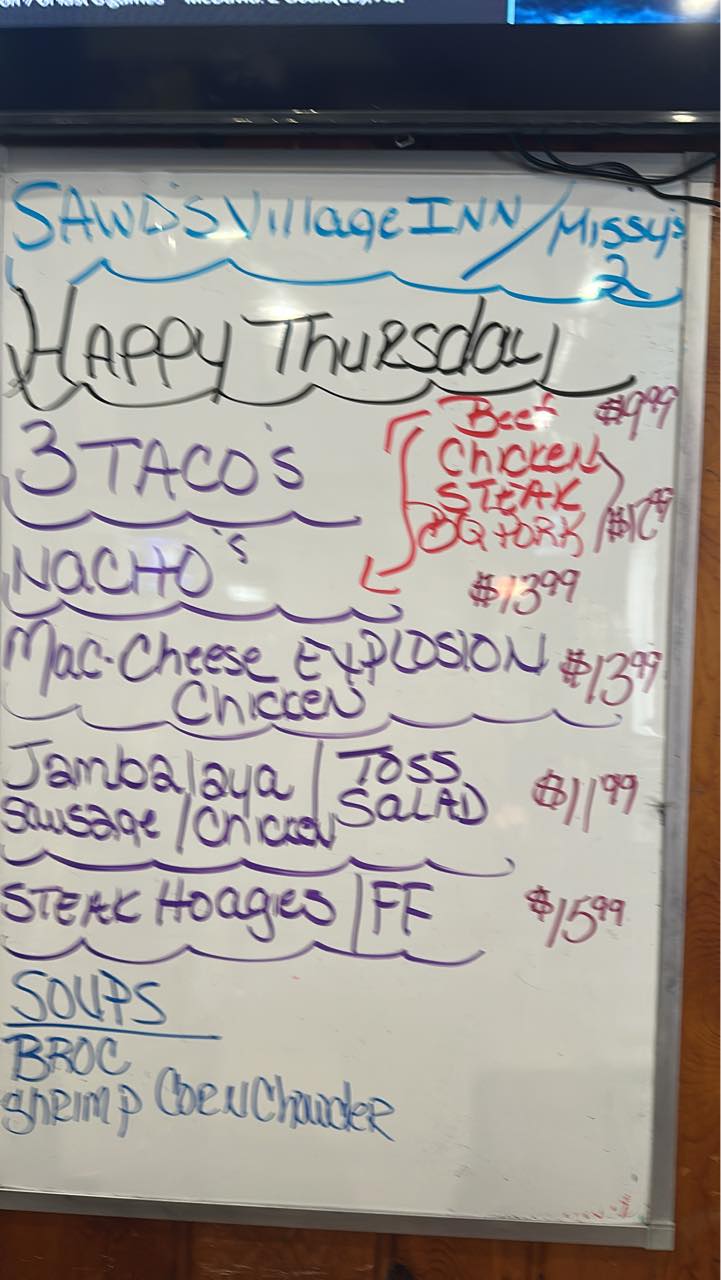 SAWD'S Village INN / Missy's
2
HAPPY THURSday
3 TACO'S
Beef $9.99
Chicken
STEAK
BBQ PORK
NACHO'S
$13.99
Mac-Cheese EXPLOSION $13.99
Chicken
Jambalaya | TOSS
Sausage / Chicken SALAD $11.99
STEAK Hoagies | FF $15.99
SOUPS
BROC
Shrimp Corn Chowder